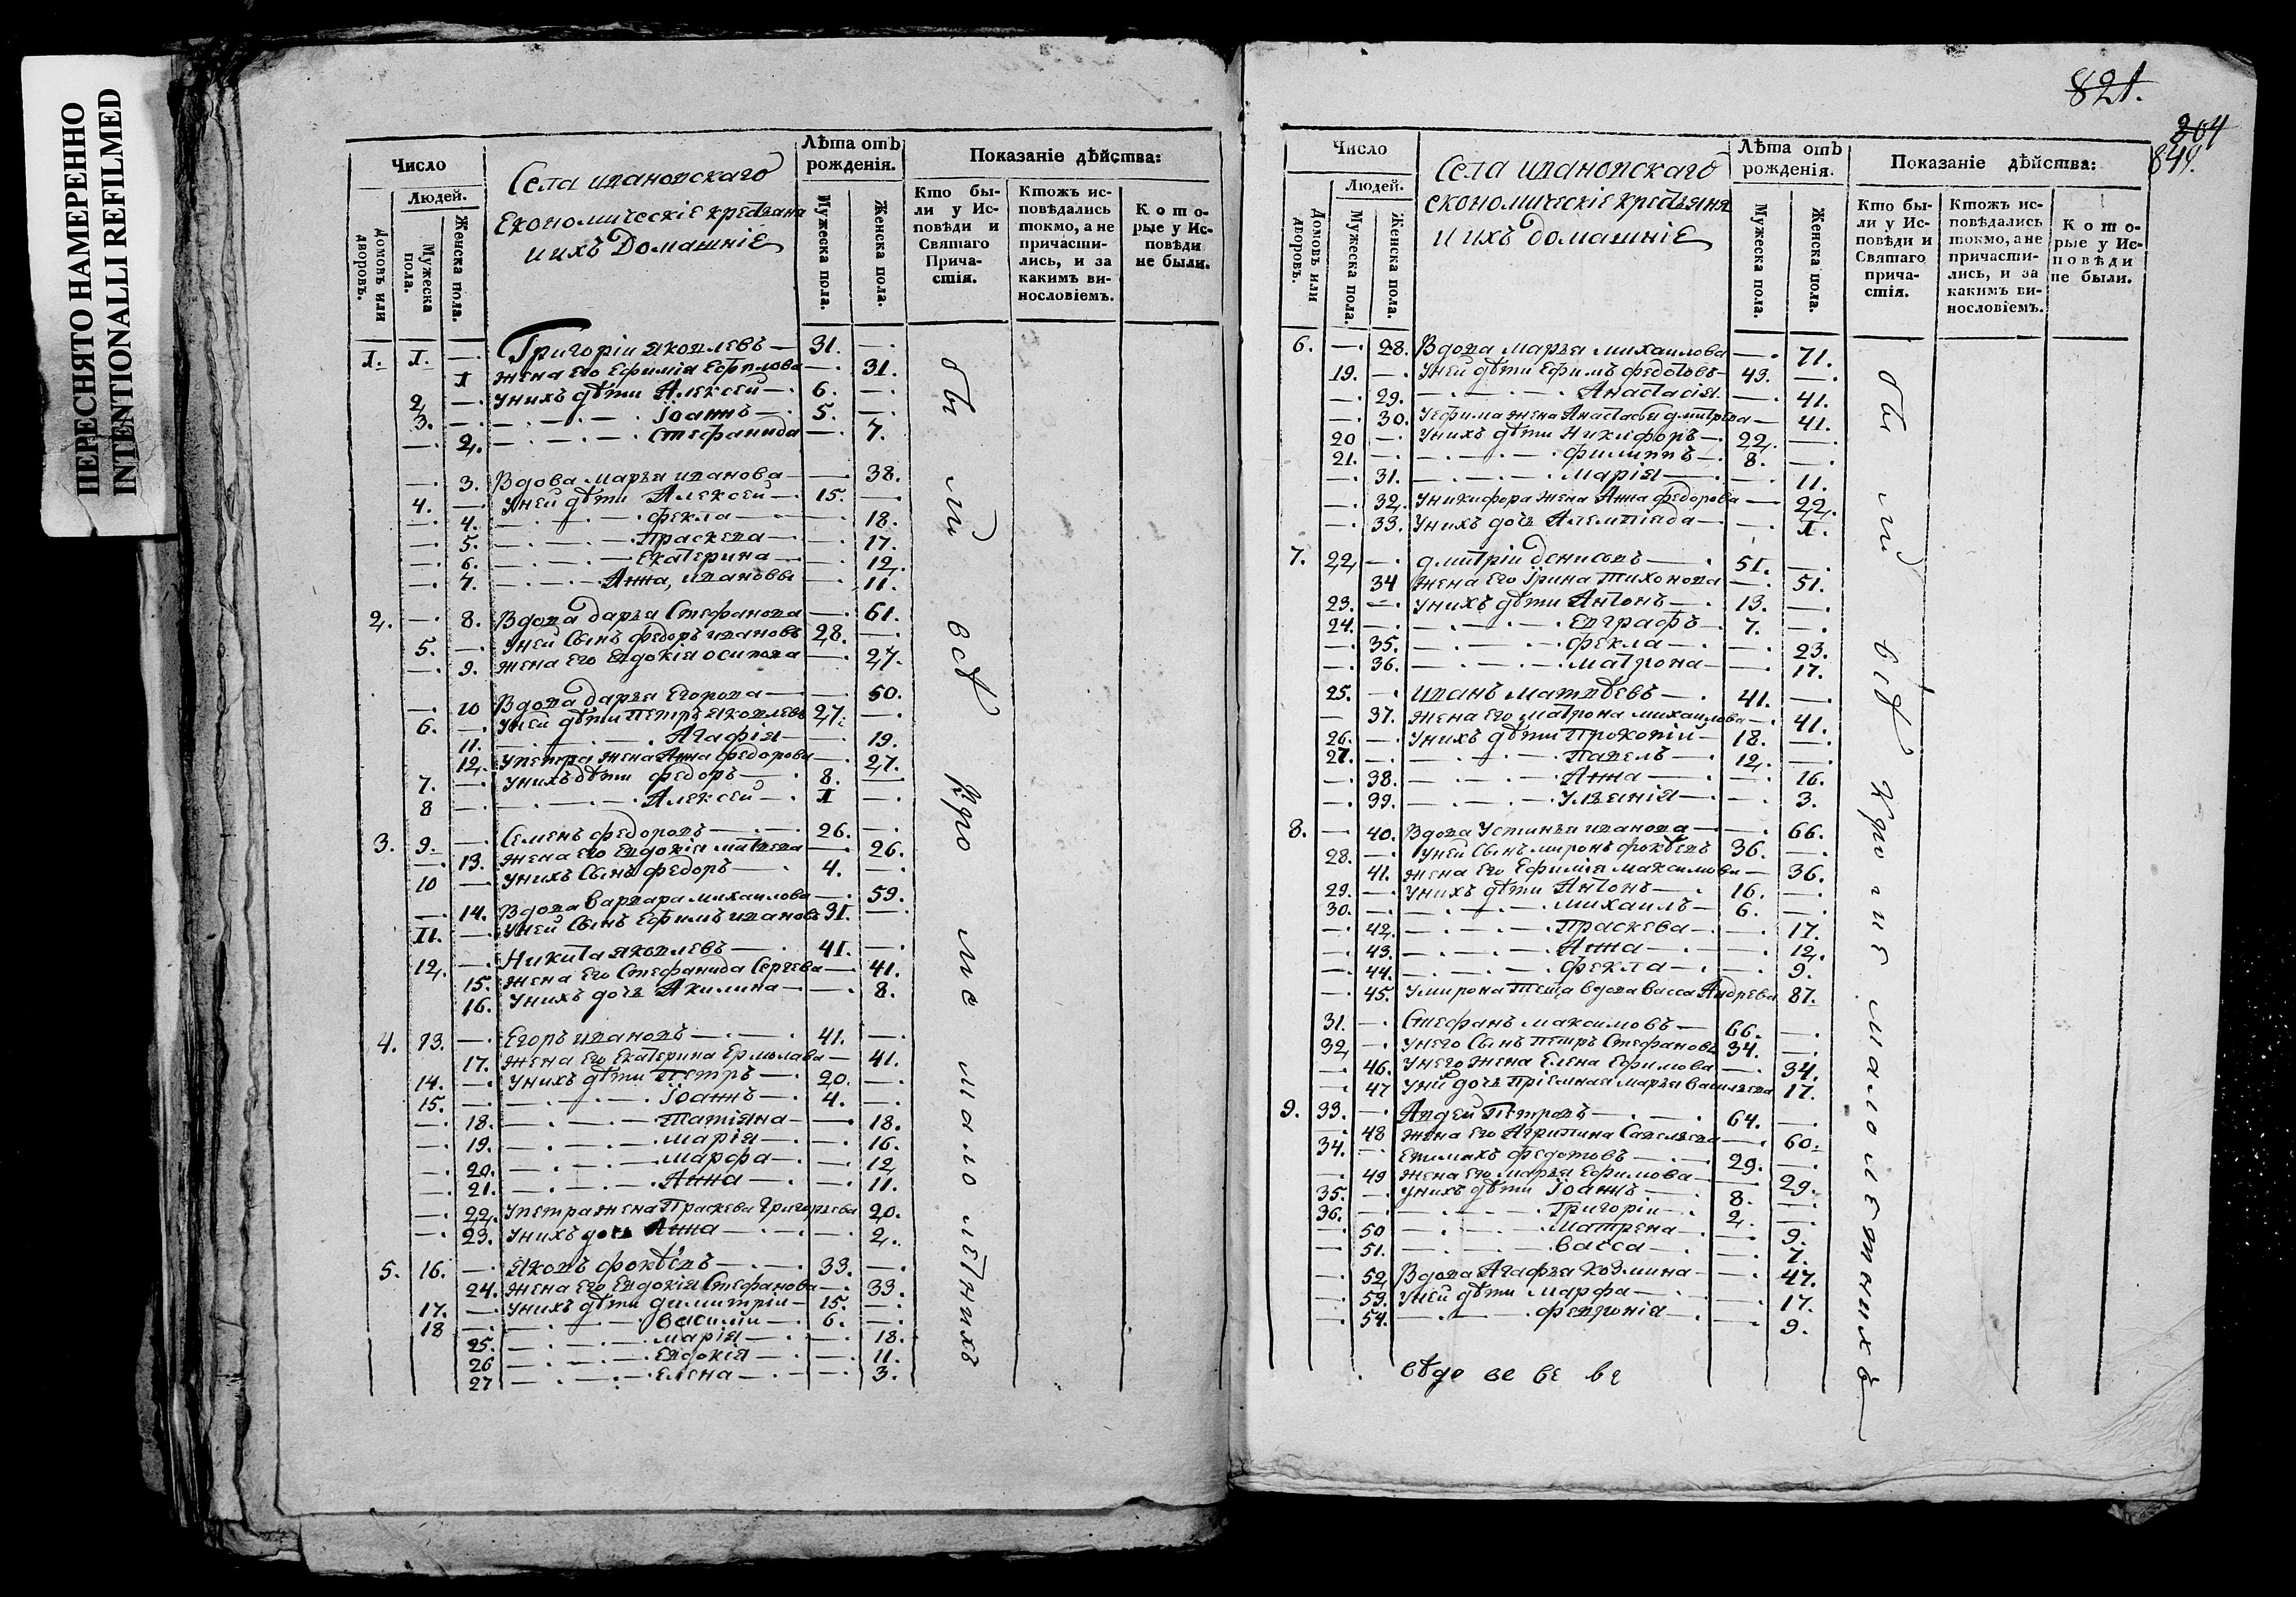 ПЕРЕСНЯТО НАМЕРЕННО
INTENTIONALLI REFILMED
Число
Людей.
Домовъ или дворовъ.
Мужеска пола.
Женска пола.
Села ивановскаго
Економическіе кресьяна
и ихъ Домашніе
Лѣта отъ рожденія.
Мужеска пола.
Женска пола.
Показаніе дѣйства:
Кто были у Исповѣди и Святаго Причастія.
Ктожъ исповѣдались токмо, а не причастились, и за какимъ винословіемъ.
Которые у Исповѣди не были.
1. 1. —. Григоріи яковлевъ — 31. —.
1 жена его Ефимія Ефрилова —. 31.
2 —. Унихъ дѣти Алексей —. 6. —.
3. —. Іоаннъ —. 5. —.
—. 2. Стефанида —. 7.
—. 3. Вдова марья иванова —. 38.
4. —. Уней дѣти Алексей —. 15. —.
—. 4. фекла — 18.
—. 5. Праскева —. 17.
—. 6. Екатерина —. 12.
—. 7. Анна, ивановы —. 11.
2. —. 8. Вдова дарья Стефанова —. 61.
5. —. Уней Сынъ федоръ ивановъ 28. —.
—. 9. жена его Евдокія осипова —. 27.
—. 10 Вдова дарья Егорова —. 50.
6. —. Уней дѣти Петръ яковлевъ 27. —.
11. Агафія —. 19.
12. Упетра жена Анна федорова —. 27.
7. —. Унихъ дѣти федоръ —. 8. —
8 —. Алексей —. 1 —.
3. 9. —. Семенъ федоровъ —. 26. —.
—. 13. жена его Евдокія матвева —. 26.
10 —. Унихъ Сынъ федоръ —. 4. —.
—. 14. Вдова варвара михаилова —. 59.
11. —. Уней Сынъ Ефимъ ивановъ 31. —.
12. —. Никита яковлевъ —. 41. —.
15. жена его Стефанида Сергева —. 41.
16. Унихъ дочь Акилина —. 8.
4. 13. —. Егоръ ивановъ —. 41. —.
17. жена его Екатерина Ермолава — 41.
14. —. Унихъ дѣти Петръ —. 20. —.
15. —. Іоаннъ —. 4. —.
—. 18. Татіяна —. 18.
—. 19. марія —. 16.
—. 20. марфа —. 12
—. 21. Анна —. 11.
—. 22. Упетра жена Праскева Григорьева 20.
—. 23. Унихъ дочь Анна —. 2.
5. 16. —. яковъ фокѣевъ —. 33. —.
24. жена его Евдокія Стефанова —. 33.
17. —. Унихъ дѣти димитріи — 15. —.
18 —. василіи —. 6. —.
25. марія —. 18.
26 Евдокія —. 11.
27 елена —. 3.
были всѣ кроме малолетнихъ
821.
204
849.
Число
Людей.
Домовъ или дворовъ.
Мужеска пола.
Женска пола.
Села ивановскаго
економическіе кресьяня
и ихъ домашніе
Лѣта отъ рожденія.
Мужеска пола.
Женска пола.
Показаніе дѣйства:
Кто были у Исповѣди и Святаго причастія.
Ктожъ исповѣдались токмо, а не причастились, и за какимъ винословіемъ.
Которые у Исповѣди не были.
6. —. 28. Вдова марья михаилова —. 71.
19. —. Уней дѣти Ефимъ федотовъ — 43. —.
—. 29. Анастасія —. 41.
—. 30. Уефима жена Анастасья дмитрева — 41.
20 —. Унихъ дѣти Никифоръ —. 22. —.
21. —. филиппъ —. 8. —.
—. 31. марія —. 11.
—. 32. Уникифора жена Анна федорова — 22.
—. 33. Унихъ дочь Алемпіяда —. 1.
7. 22 —. дмитріи денисовъ —. 51. —.
34 жена его Ірина тихонова —. 51.
23. —. Унихъ дѣти Антонъ —. 13. —.
24. —. евграфъ —. 7. —.
—. 35. фекла —. 23.
—. 36. матрона —. 17.
25. —. иванъ матвѣевъ —. 41. —.
— 37. жена его матрона михаилова —. 41.
26. —. Унихъ дѣти Прокопіи — 18. —.
27. —. павелъ —. 12. —.
—. 38. Анна —. 16.
—. 39. ульянія —. 3.
8. —. 40. Вдова Устинья иванова —. 66.
28. —. Уней Сынъ миронъ фокѣевъ 36. —.
41. жена его Ефимія максимова — 36.
29. —. Унихъ дѣти Антонъ —. 16. —.
30. —. михаилъ —. 6. —.
—. 42. Праскева —. 17.
—. 43. Анна —. 12.
—. 44. фекла —. 9.
—. 45. Умирона теща вдова васса Андрева 87.
31. —. Стефанъ максимовъ — 66. —.
32 —. Унего Сынъ петръ Стефановъ 34. —.
—. 46. Унего жена елена ефимова —. 34.
—. 47 Уни дочь пріемная марья васильева 17.
9. 33. —. Авдей Петровъ —. 64. —.
—. 48 жена его Агрипина Савельева —. 60.
34. —. Епимахъ федотовъ —. 29. —.
—. 49 жена его марья Ефимова — 29.
35. —. унихъ дѣти Іоаннъ —. 8. —.
36. —. Григоріи —. 2. —.
—. 50 матрена —. 9.
—. 51. васса —. 7.
—. 52 Вдова Агафья козмина —. 47.
—. 53. Уней дѣти марфа —. 17.
—. 54. февронія —. 9.
были всѣ кроме малолетнихъ